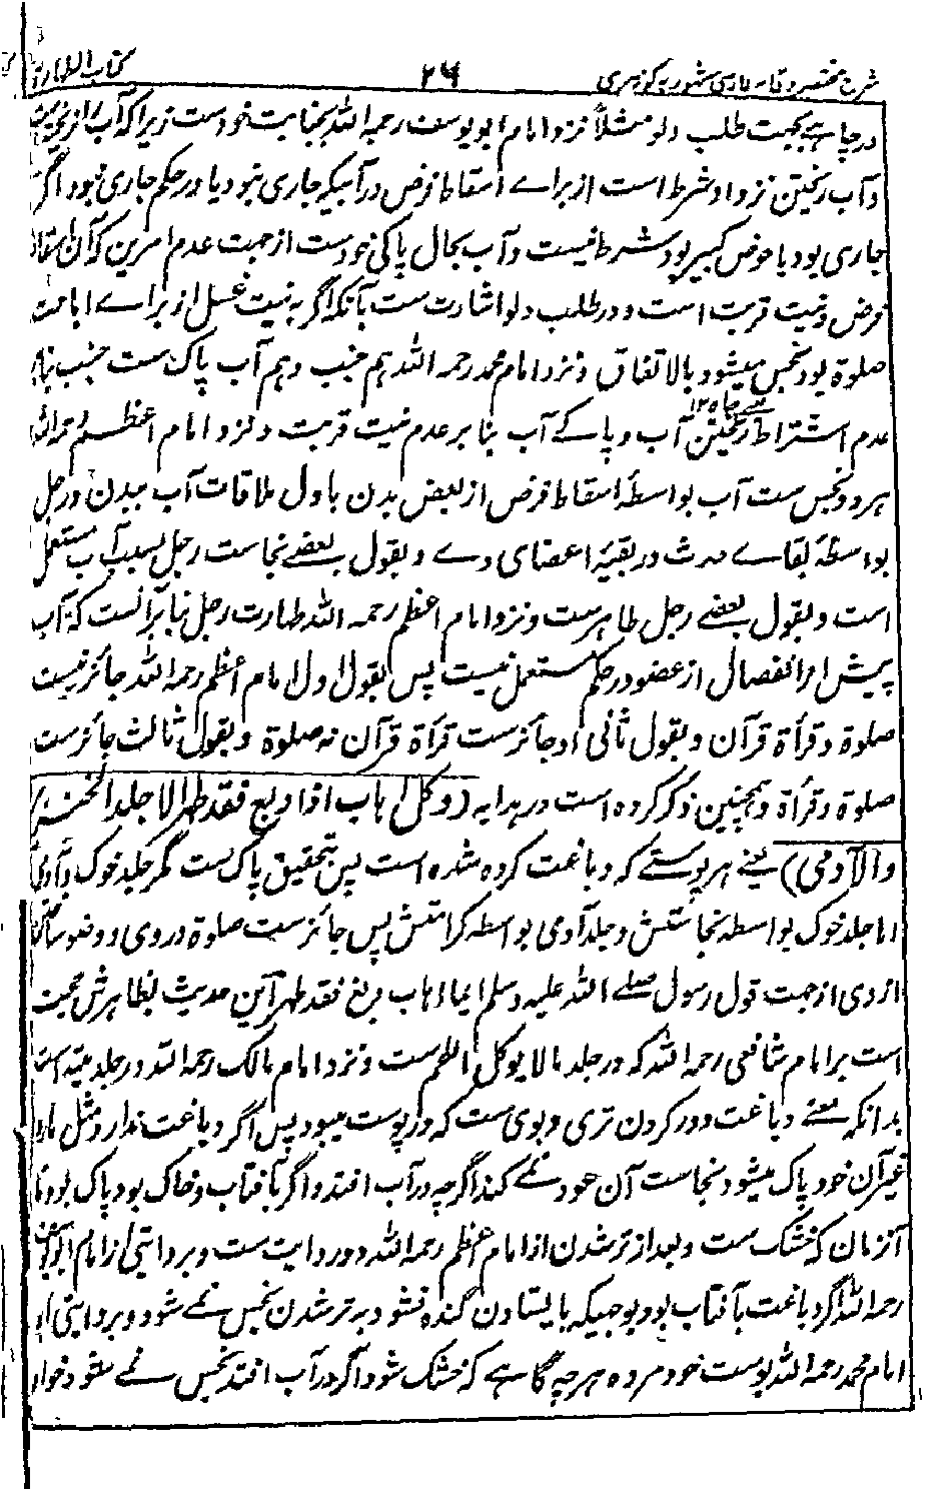 شرح مختصر وقایه فارسی مشهور به کوهسری ۲۶ کتاب الطهارة
در چاهے بجهت طلب دلو مثلاً نزد امام ابو یوسف رحمه الله بجنابت خودست زیرا که آب
و آب ریختن نزد او شرط است از براے اسقاط فرض در آبیکه جاری نبود یا در حکم جاری نبود اگر
جاری بود یا حوض کبیر بود شرط نیست و آب بحال پاکی خودست از جهت عدم امرین که آن اسقاط
فرض و نیت قربت است و در طلب دلو اشارت ست بآنکه اگر به نیت غسل از براے اباحت
صلوة بود نجس میشود بالاتفاق و نزد امام محمد رحمه الله هم جنب و هم آب پاک ست جنب بنابر
عدم اشتراط ریختن آب و پاکے آب بنا بر عدم نیت قربت و نزد امام اعظم رحمه الله
هر دو نجس ست آب بواسطهٔ اسقاط فرض از بعض بدن باول ملاقات آب ببدن و رجل
بواسطهٔ بقاے حدث در بقیهٔ اعضای وے و بقول بعضے نجاست رجل بسبب آب مستعمل
است و بقول بعضے رجل طاهرست و نزد امام اعظم رحمه الله طهارت رجل بنا برآنست که آب
پیش از انفصال از عضو در حکم مستعمل نیست پس بقول اول امام اعظم رحمه الله جائز نیست
صلوة و قرأة قرآن و بقول ثانی او جائزست قرأة قرآن نه صلوة و بقول ثالث جائزست
صلوة و قرأة و همچنین ذکر کرده است در هدایه (وکل اهاب اذا دبغ فقد طهر الا جلد الخنزیر
والآدمی) یعنے هر پوستے که دباغت کرده شده است پس بتحقیق پاک ست مگر جلد خوک و آدمی
اما جلد خوک بواسطه نجاستش و جلد آدمی بواسطه کرامتش پس جائزست صلوة در وی و وضو ساختن
از وی از جهت قول رسول صلے الله علیه وسلم ایما اهاب دبغ فقد طهر این حدیث بظاهرش حجت
است بر امام شافعی رحمه الله که در جلد مالا یوکل اللحم ست و نزد امام مالک رحمه الله در جلد میته است
بدانکه معنے دباغت دور کردن تری و بوی ست که در پوست میبود پس اگر دباغت بدارو مثل مازو
غیر آن خود پاک میشود و نجاست آن عود نمے کند اگر چه در آب افتد و اگر بآفتاب و خاک بود پاک بود تا
آنزمان که خشک ست و بعد از تر شدن از امام اعظم رحمه الله دو روایت ست و بروایتی از امام ابو یوسف
رحمه الله اگر دباغت بآفتاب بود بوجهیکه بایستادن گنده نشود بتر شدن نجس نمے شود و بروایتی از
امام محمد رحمه الله پوست خود مرده هر چه گاهے که خشک شود اگر در آب افتد نجس نمے شود و خواه